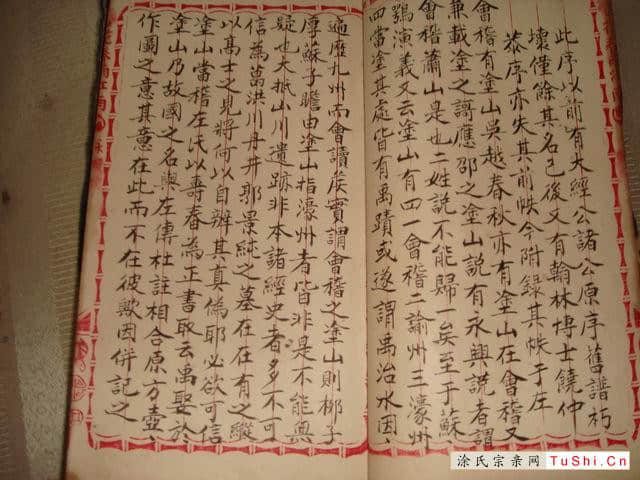 此序以前有大經公諸公原序舊譜朽
壞僅除其名已後又有翰林博士饒仲
恭序亦失其前帙今附錄其帙于左
會稽有塗山吳越春秋亦有塗山在會稽又
兼載塗之謌應邵之塗山説有永興説者謂
會稽蕭山是也二姓説不能歸一矣至于蘇
鶚演義又云塗山有四一會稽二渝州三濠州
四當塗其處皆有禹蹟或遂謂禹治水因、
遍歷九州而會讀矦實謂會稽之塗山則栁子
厚蘇子瞻由塗山指濠州者皆非是不能與
疑也大抵山川遺跡非本諸經史者多不可
信為葛洪川丹井郭景純之墓在在有之縱
以高士之見將何以自辦其真偽耶必欲可信
塗山當稽左氏以壽春為正書取云禹娶於
塗山乃故國之名與左傳杜註相合原方壺、
作圖之意其意在此而不在彼歟因併記之
涂氏宗亲网
TuShi.Cn